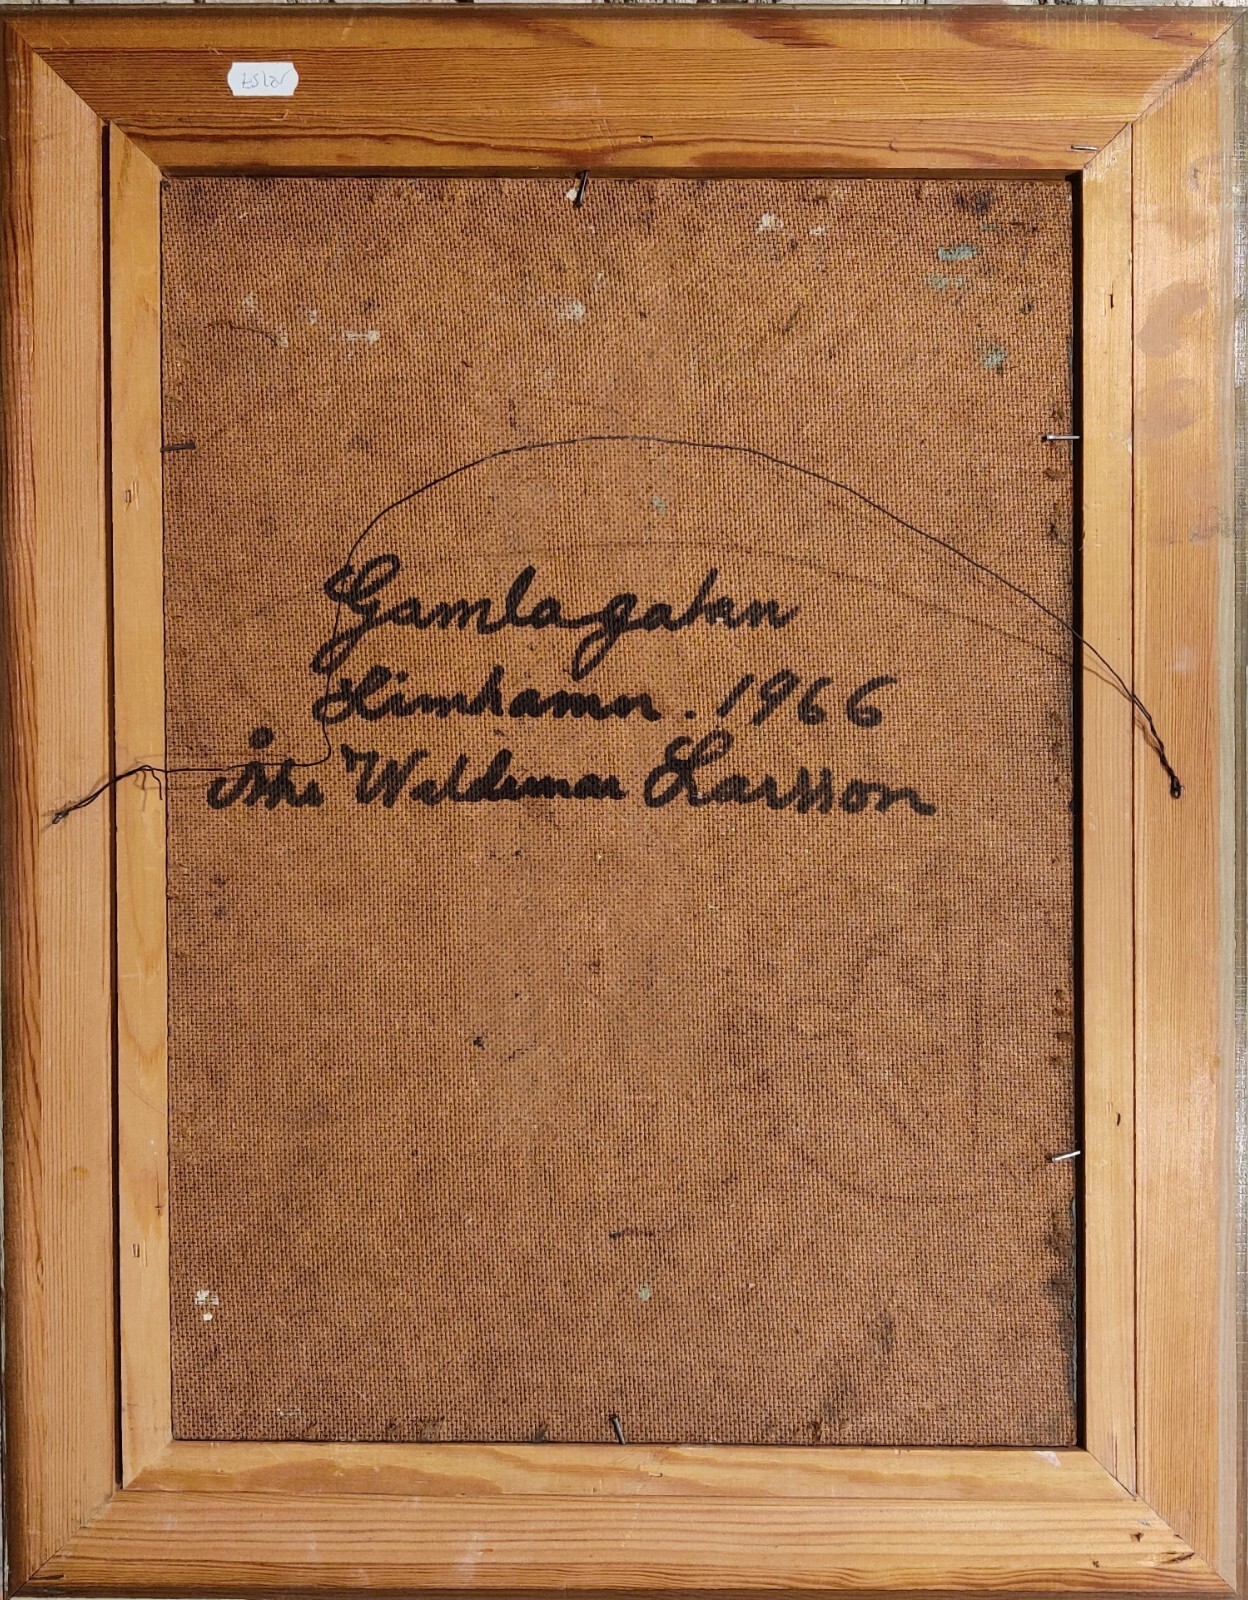 Gamlagatan
Limhamn. 1966
Åke Waldemar Larsson